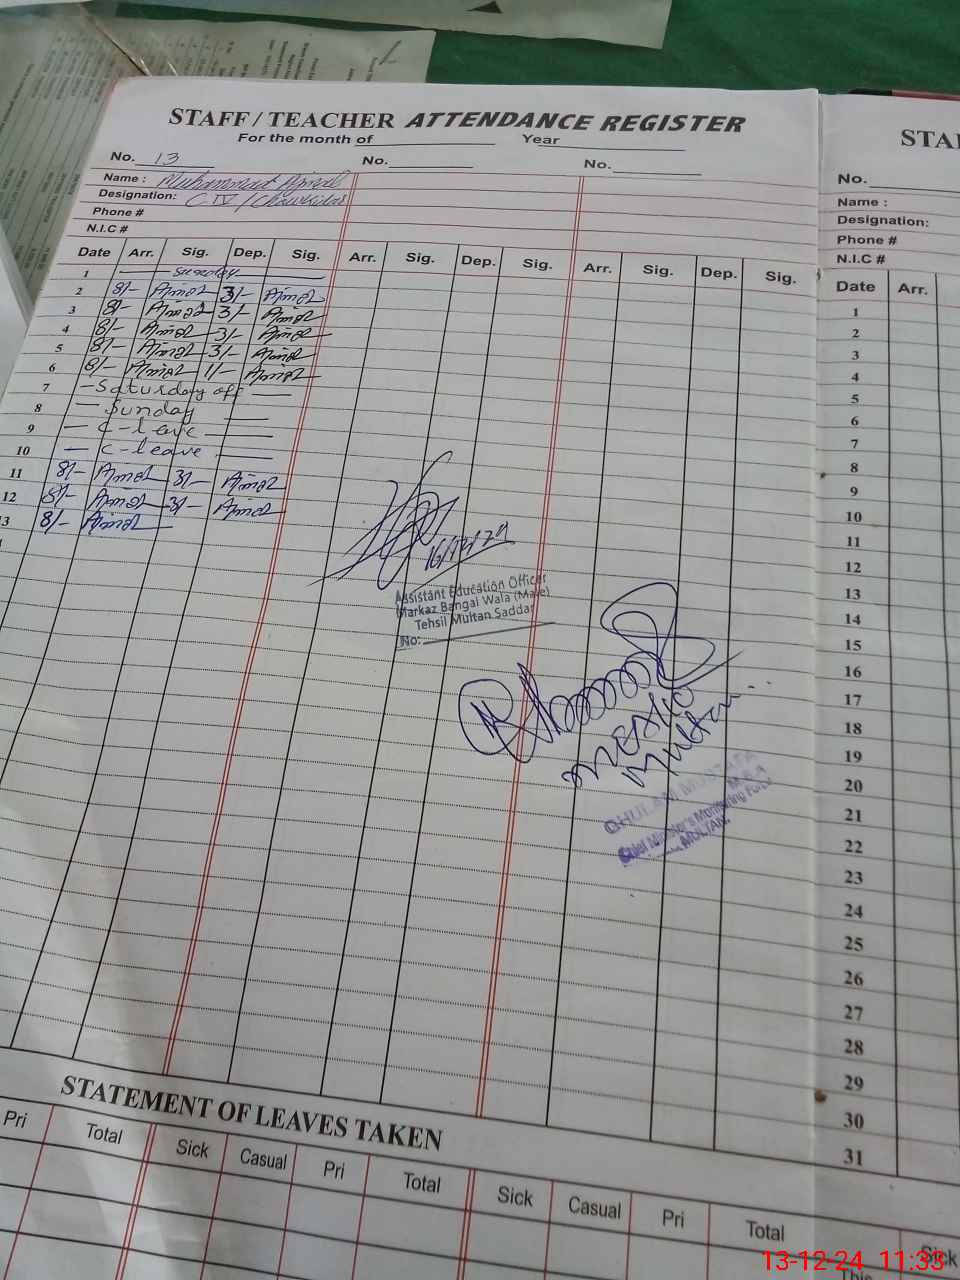 STAFF / TEACHER ATTENDANCE REGISTER
For the month of Year
No. 13 No. No.
Name : Muhammad Ajmal
Designation: C-IV / Chowkidar
Phone #
N.I.C #
Date Arr. Sig. Dep. Sig. Arr. Sig. Dep. Sig. Arr. Sig. Dep. Sig.
1 Sunday
2 8/- Ajmal 3/- Ajmal
3 8/- Ajmal 3/- Ajmal
4 8/- Ajmal 3/- Ajmal
5 8/- Ajmal 3/- Ajmal
6 8/- Ajmal 1/- Ajmal
7 - Saturday off -
8 - Sunday -
9 - C-leave -
10 - C-leave -
11 8/- Ajmal 3/- Ajmal
12 8/- Ajmal 3/- Ajmal
13 8/- Ajmal
Assistant Education Officer
Markaz Bangal Wala (Male)
Tehsil Multan Saddar
No:
Multan
GHULAM MUSTAFA
M.E.A
Chief Minister's Monitoring Force
MULTAN
STATEMENT OF LEAVES TAKEN
Pri Total Sick Casual Pri Total Sick Casual Pri Total Sick
This
STA
No.
Name :
Designation:
Phone #
N.I.C #
Date Arr.
1
2
3
4
5
6
7
8
9
10
11
12
13
14
15
16
17
18
19
20
21
22
23
24
25
26
27
28
29
30
31
13-12-24 11:33